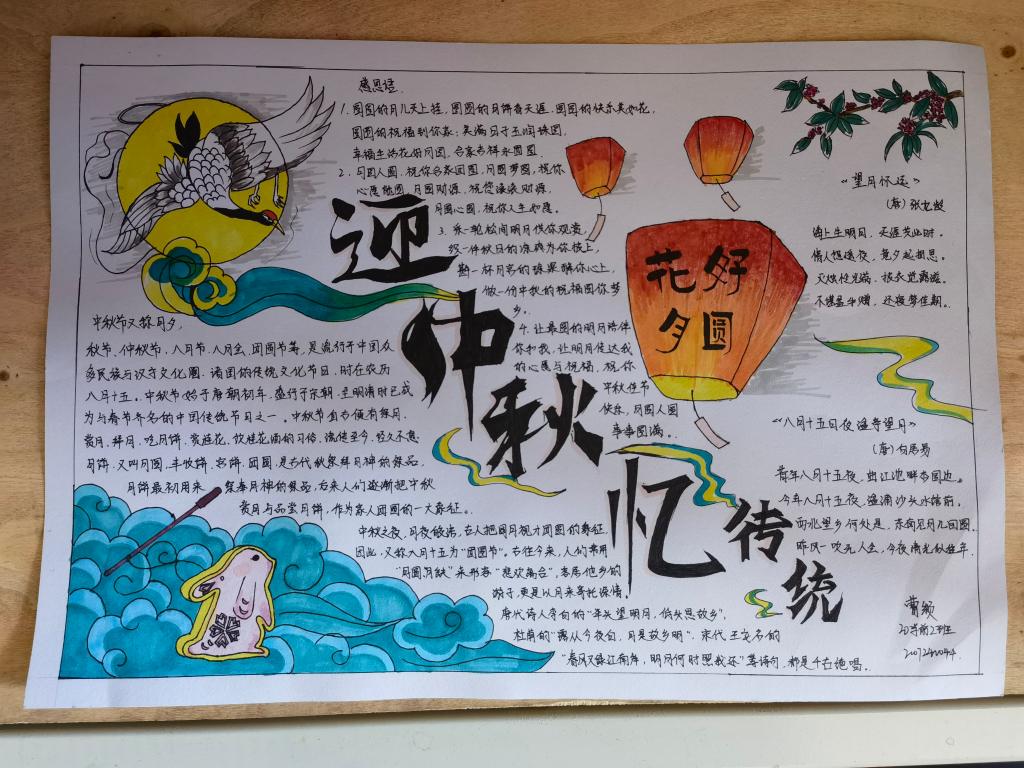 感恩语
1. 圆圆的月儿天上挂，圆圆的月饼香天涯，圆圆的快乐美如花，
圆圆的祝福到你家：美满日子玉润珠圆，
幸福生活花好月圆，合家吉祥永团圆。
2. 月圆人圆，祝你合家团圆，月圆梦圆，祝你
心愿能圆，月圆财源，祝您滚滚财源，
月圆心圆，祝你人生如愿。
3. 采一轮校间明月供你观赏，
一件秋日的凉裳为你披上，
斟一杯月亮的琼浆醉你心上，
做一份中秋的祝福圆你梦
乡。
4. 让最圆的明月陪伴
你和我，让明月传达我
的心愿与祝福，祝你
中秋佳节
快乐，月圆人圆
事事圆满。
迎中秋
忆传统
花好
月圆
中秋节又称月夕，
秋节、仲秋节、八月节、八月会、团圆节等，是流行于中国众
多民族与汉字文化圈，诸国的传统文化节日，时在农历
八月十五。中秋节始于唐朝初年，盛行于宋朝，至明清时已成
为与春节齐名的中国传统节日之一。中秋节自古便有祭月、
赏月、拜月、吃月饼、赏桂花、饮桂花酒的习俗，流传至今，经久不息
月饼，又叫月团、丰收饼、宫饼、团圆，是古代秋祭拜月神的祭品，
月饼最初用来 祭奉月神的祭品，后来人们逐渐把中秋
赏月与品尝月饼，作为家人团圆的一大象征。
中秋之夜，月夜皎洁，古人把圆月视为团圆的象征，
因此，又称八月十五为“团圆节”。古往今来，人们常用
“月圆、月缺”来形容“悲欢离合”，客居他乡的
游子，更是以月来寄托深情。
唐代诗人李白的“举头望明月，低头思故乡”，
杜甫的“露从今夜白，月是故乡明”，宋代王安石的
“春风又绿江南岸，明月何时照我还”等诗句，都是千古绝唱。
《望月怀远》
（唐）张九龄
海上生明月，天涯共此时。
情人怨遥夜，竟夕起相思。
灭烛怜光满，披衣觉露滋。
不堪盈手赠，还寝梦佳期。
《八月十五日夜湓亭望月》
（唐）白居易
昔年八月十五夜，曲江池畔杏园边。
今年八月十五夜，湓浦沙头水馆前。
西北望乡何处是，东南见月几回圆。
昨风一吹无人会，今夜清光似往年。